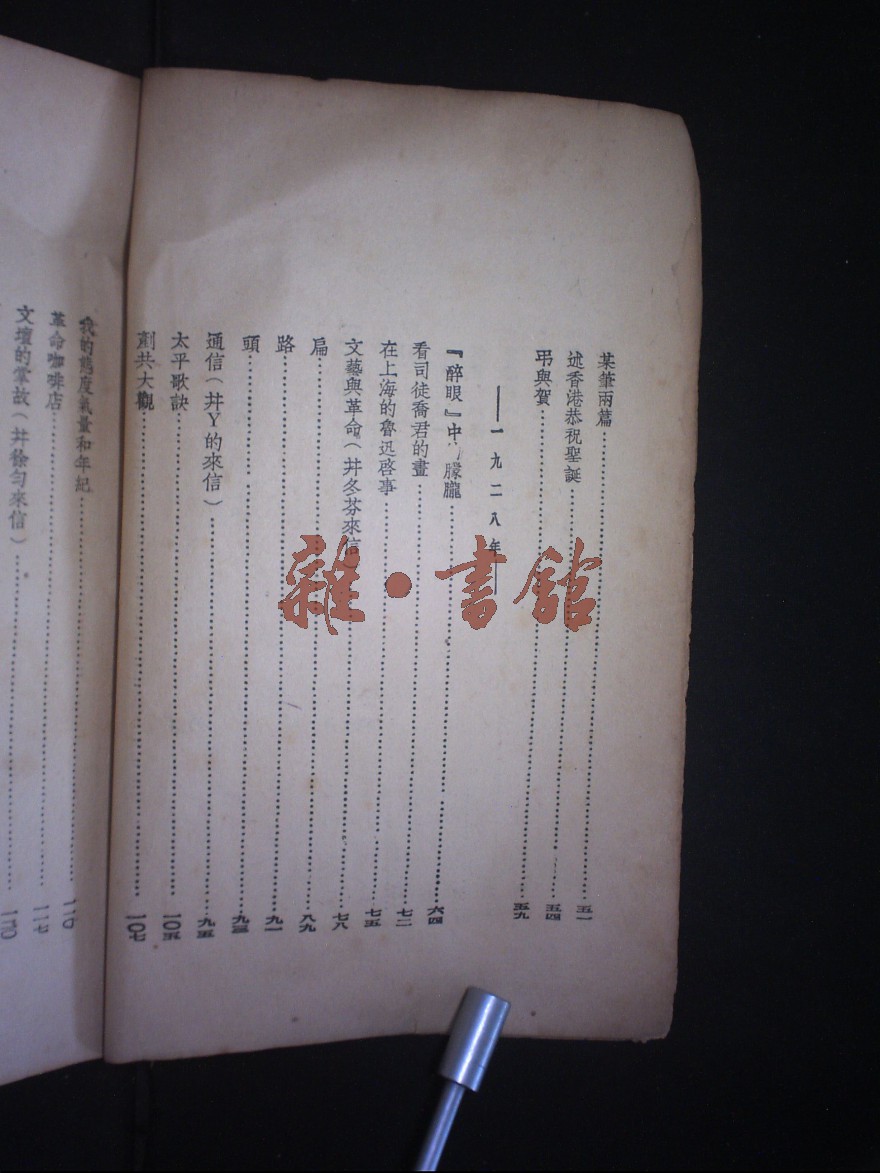 某筆兩篇……五一
述香港恭祝聖誕……五四
弔與賀……五九
——一九二八年——
『醉眼』中 朦朧……六四
看司徒喬君的畫……七二
在上海的魯迅啓事……七五
文藝與革命（幷冬芬來信）……七八
扁……八九
路……九一
頭……九三
通信（幷Y的來信）……九五
太平歌訣……一〇五
劃共大觀……一〇七
我的態度氣量和年紀……
革命咖啡店……一一七
文壇的掌故（幷徐匀來信）……一二〇
雜·書館